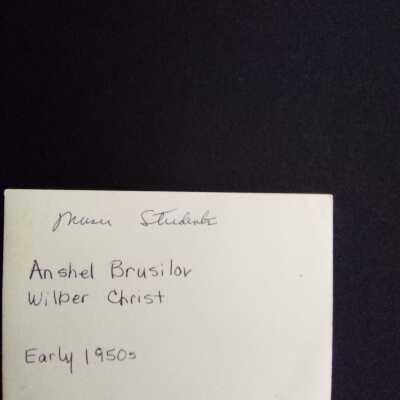 Music Students
Anshel Brusilov
Wilber Christ
Early 1950s